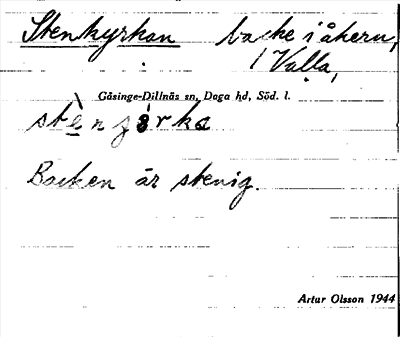 Stenkyrkan backe i åkern,
i Valla,
Gåsinge-Dillnäs sn, Daga hd, Söd. l.
Backen är stenig.
Artur Olsson 1944